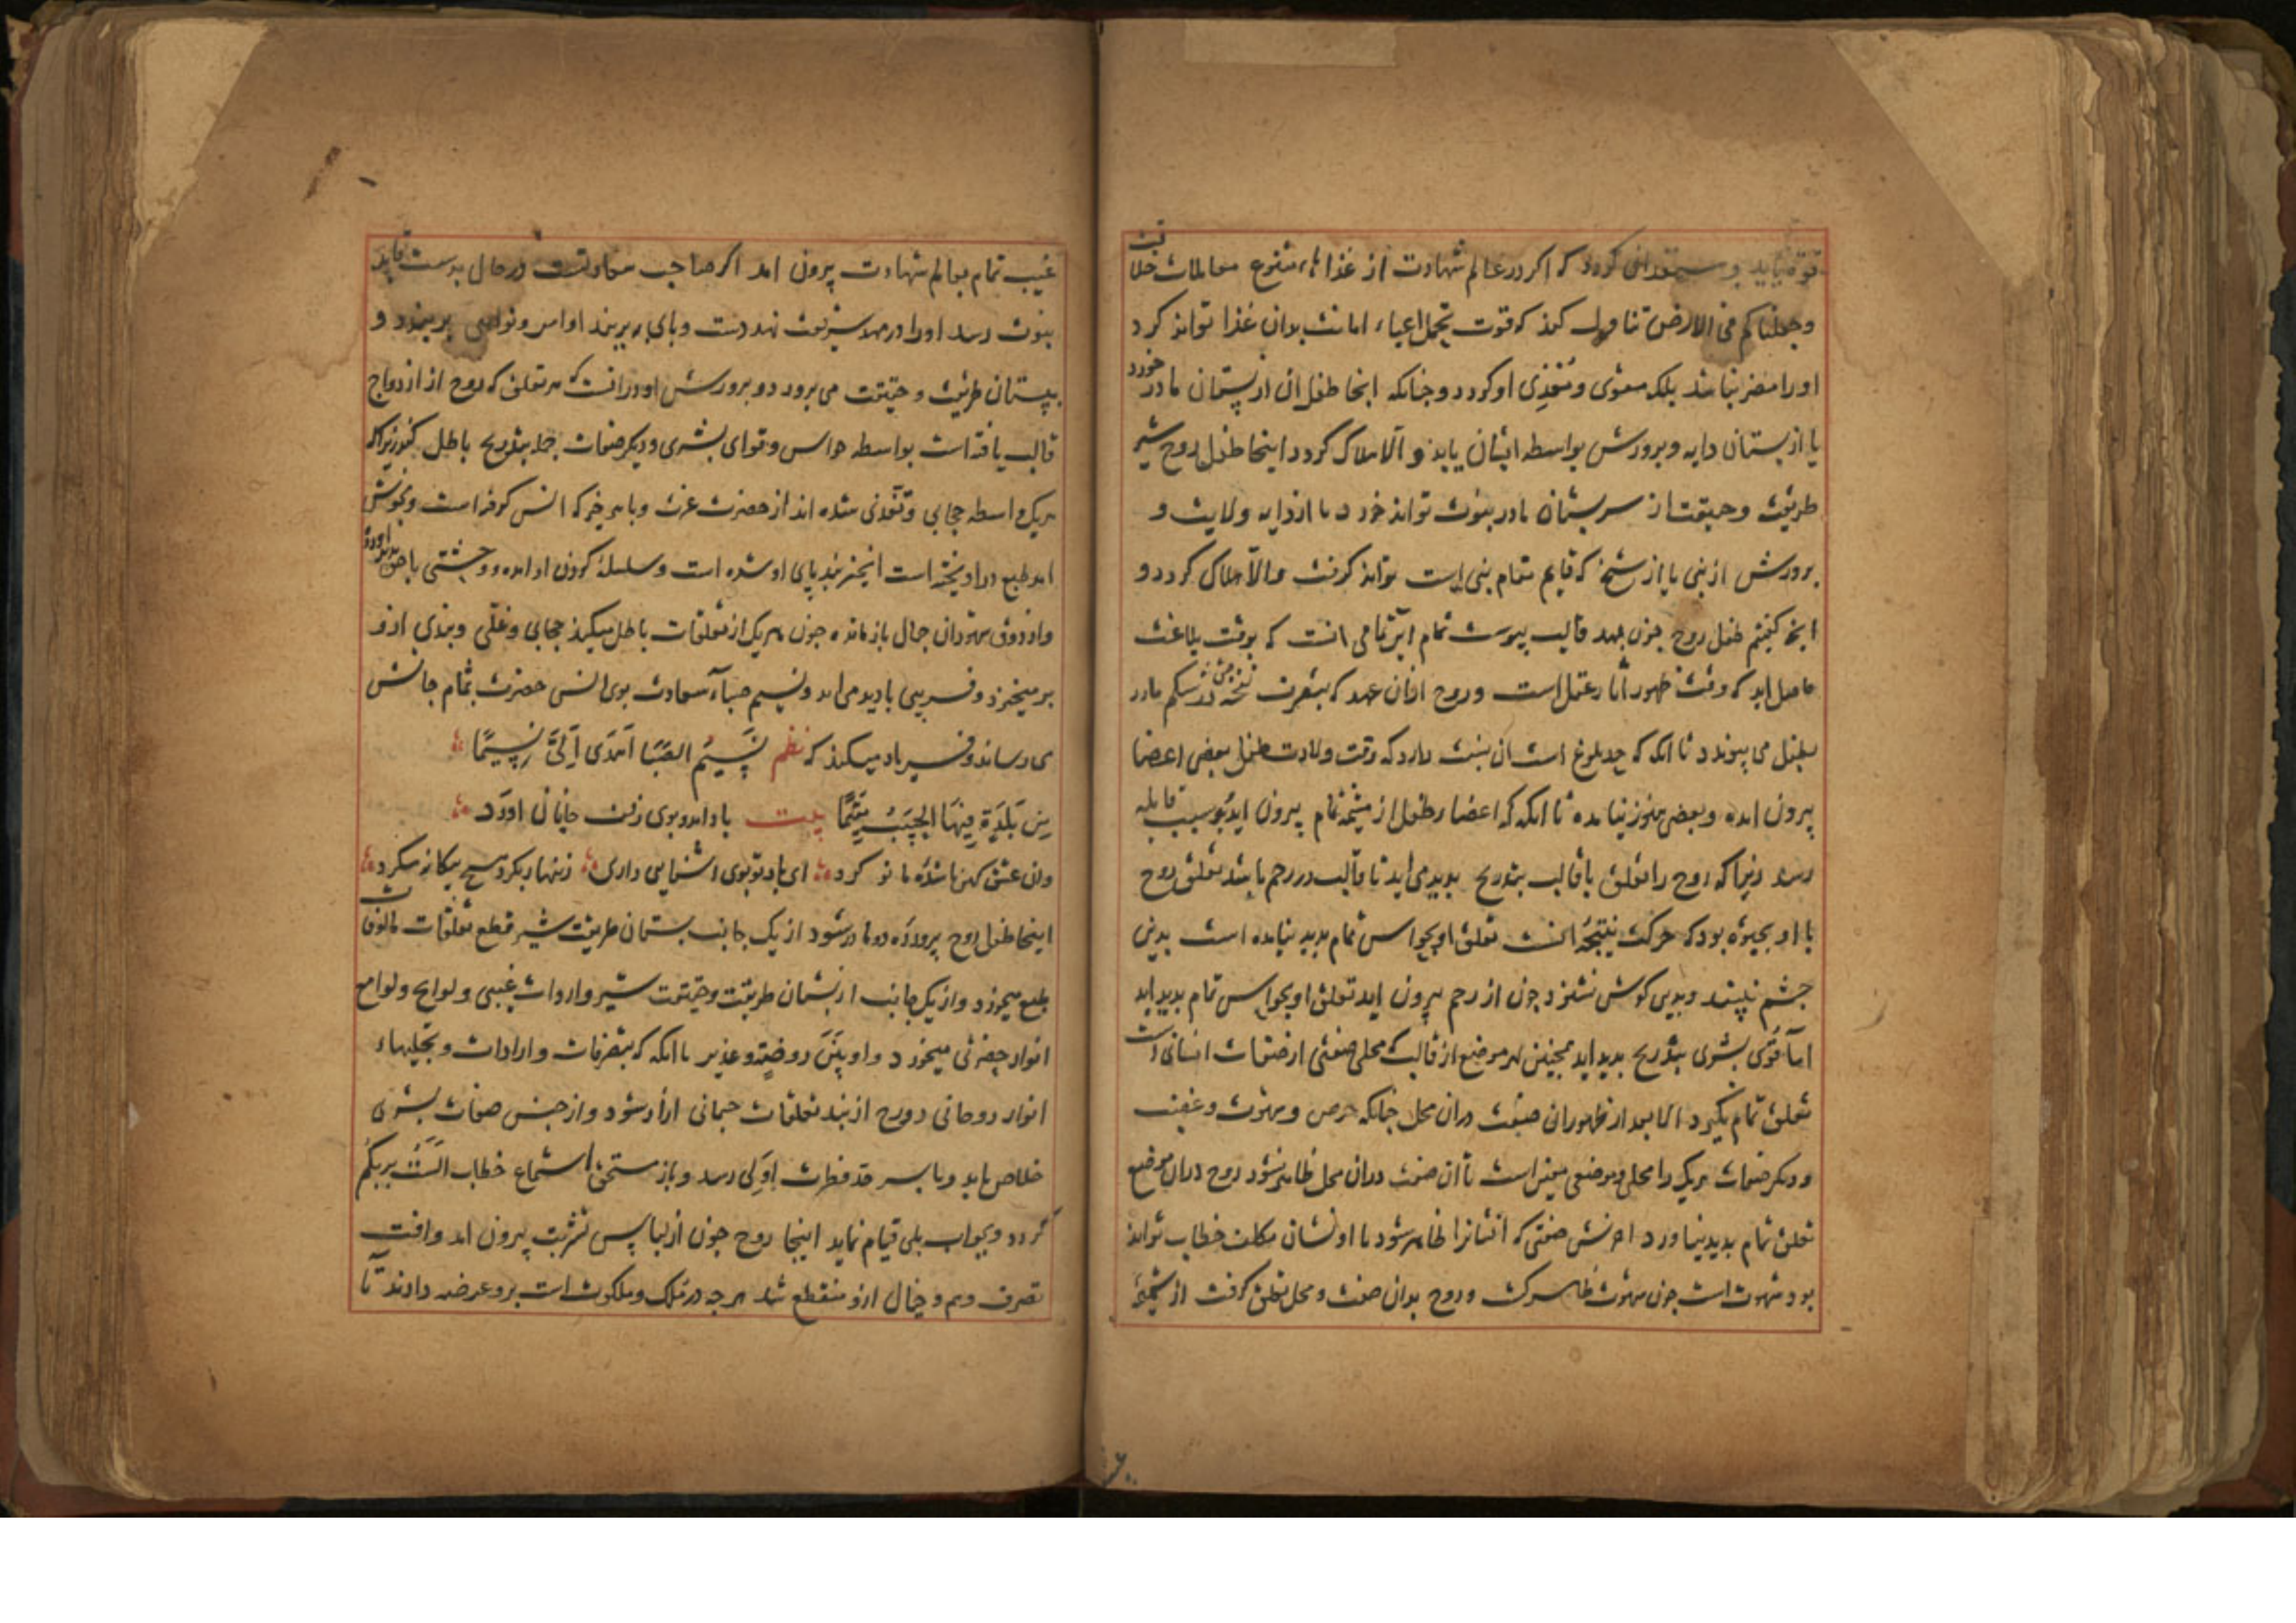 قوة نیابد و مستعد ان کردد که اکر در عالم شهادت از غذاهاء متنوع معاملات خلافت
وجعلناکم فی الارض تناول کند که قوت تحمل اعباء امانت بدان غذا تواند کرد
او را مضر نباشد بلکه مقوی و مغذی او کردد و جنانکه انجا طفل ان از پستان مادر خورد
یا از بستان دایه و برورش بواسطه ایشان یابد و الا هلاک کردد اینجا طفل روح شیر
طریقت و حقیقت از سر بستان مادر نبوت تواند خورد یا از دایه ولایت و
برورش از نبی یا از شیخ که قایم مقام نبی است تواند کرفت و الا هلاک کردد و
انجه کفتیم طفل روح جون بمهد قالب پیوست تمام این تمامی انست که بوقت بلاغت
حاصل اید که وقت ظهور اثار عقل است و روح ازان عهد که بتصرف نفخه در شکم مادر
بطفل می پیوندد تا انکه که بحد بلوغ است ان نسبت دارد که وقت ولادت طفل بعضی اعضا
بیرون امده و بعضی هنوز نیامده تا انکه که اعضاء طفل از مشیمه تمام بیرون اید بوسیلت قابله
رسد زیرا که روح را تعلق با قالب بتدریج بدید می اید تا قالب در رحم باشد تعلق روح
با او بحیوة بود که حرکت نتیجه انست تعلق او بحواس تمام بدید نیامده است بدین
جشم نبیند و بدین کوش نشنود جون از رحم بیرون اید تعلق او بحواس تمام بدید اید
اما قوی بشری بتدریج بدید اید همجنین هر موضع از قالب که محل صفتی از صفات انسانی است
تعلق تمام نکیرد الا بعد از ظهور ان صفت دران محل جنانکه حرص و شهوت و غضب
و دیکر صفات هر یک را محلی و موضعی معین است تا ان صفت دران محل ظاهر نشود روح دران موضع
تعلق تمام بدید نیاورد اخرش صفتی که انسانرا ظاهر شود تا او نشان مکلف خطاب تواند
بود شهوت است جون شهوت ظاهر کشت و روح بدان صفت و محل تعلق کرفت از مشیمه
غیب تمام بعالم شهادت بیرون امد اکر صاحب سعادتست در حال بدست قابله
نبوت رسد او را در مهد شریعت نهد دست و بای به بربند اوامر و نواهی بربندد و
ببستان طریقت و حقیقت می برورد و برورش او در انست که هر تعلق که روح از ازدواج
قالب یافته است بواسطه حواس و قوای بشری و دیکر صفات جمله بتدریج باطل کند زیرا که
هر یک واسطه حجابی و بعدی شده اند از حضرت عزت و با هر جیز که انس کرفته است و بخوش
امد طبع در اویخته است انجیز بند پای او شده است و سلسله کردن او امده و وحشتی با حق بدید اورده
و از ذوق شهود ان جمال باز مانده جون هر یک از تعلقات باطل میکند حجابی و غلی و بندی ازو
بر میخیزد و قربی بادید می اید و نسیم صبای سعادت بوی انس حضرت بمشام جانش
می رساند و فریاد میکند که نظم نَسِیْمُ الصَّبَا اَهْدَی اِلَیَّ نَسِیْمًا
مِنْ بَلْدَةٍ فِیْهَا الْحَبِیْبُ مُقِیْمًا بیت باد امد و بوی زلف جانان اورد
وان عشق کهن ناشده ما نو کرد ای باد تو بوی اشنایی داری زنهار بکرد هیچ بیکانه مکرد
اینجا طفل روح پرورده دو مادر شود از یک جانب بستان طریقت شیر قطع تعلقات مالوفات
طبع میخورد و از یک جانب از بستان طریقت و حقیقت شیر واردات غیبی و لوایح و لوامع
انوار حضرتی میخورد و او بَیْنَ روضةٍ و غدیر تا انکه که بتصرفات واردات و تجلیهاء
انوار روحانی روح از بند تعلقات جسمانی ازاد شود و از حبس صفات بشری
خلاص یابد و با سر حد فطرت اولی رسد و باز مستحق استماع خطاب الست بربکم
کردد و بجواب بلی قیام نماید اینجا روح جون از لباس بشریت بیرون امد و افت
تصرف وهم و خیال ازو منقطع شد هر جه در ملک و ملکوت است برو عرضه دارند تا